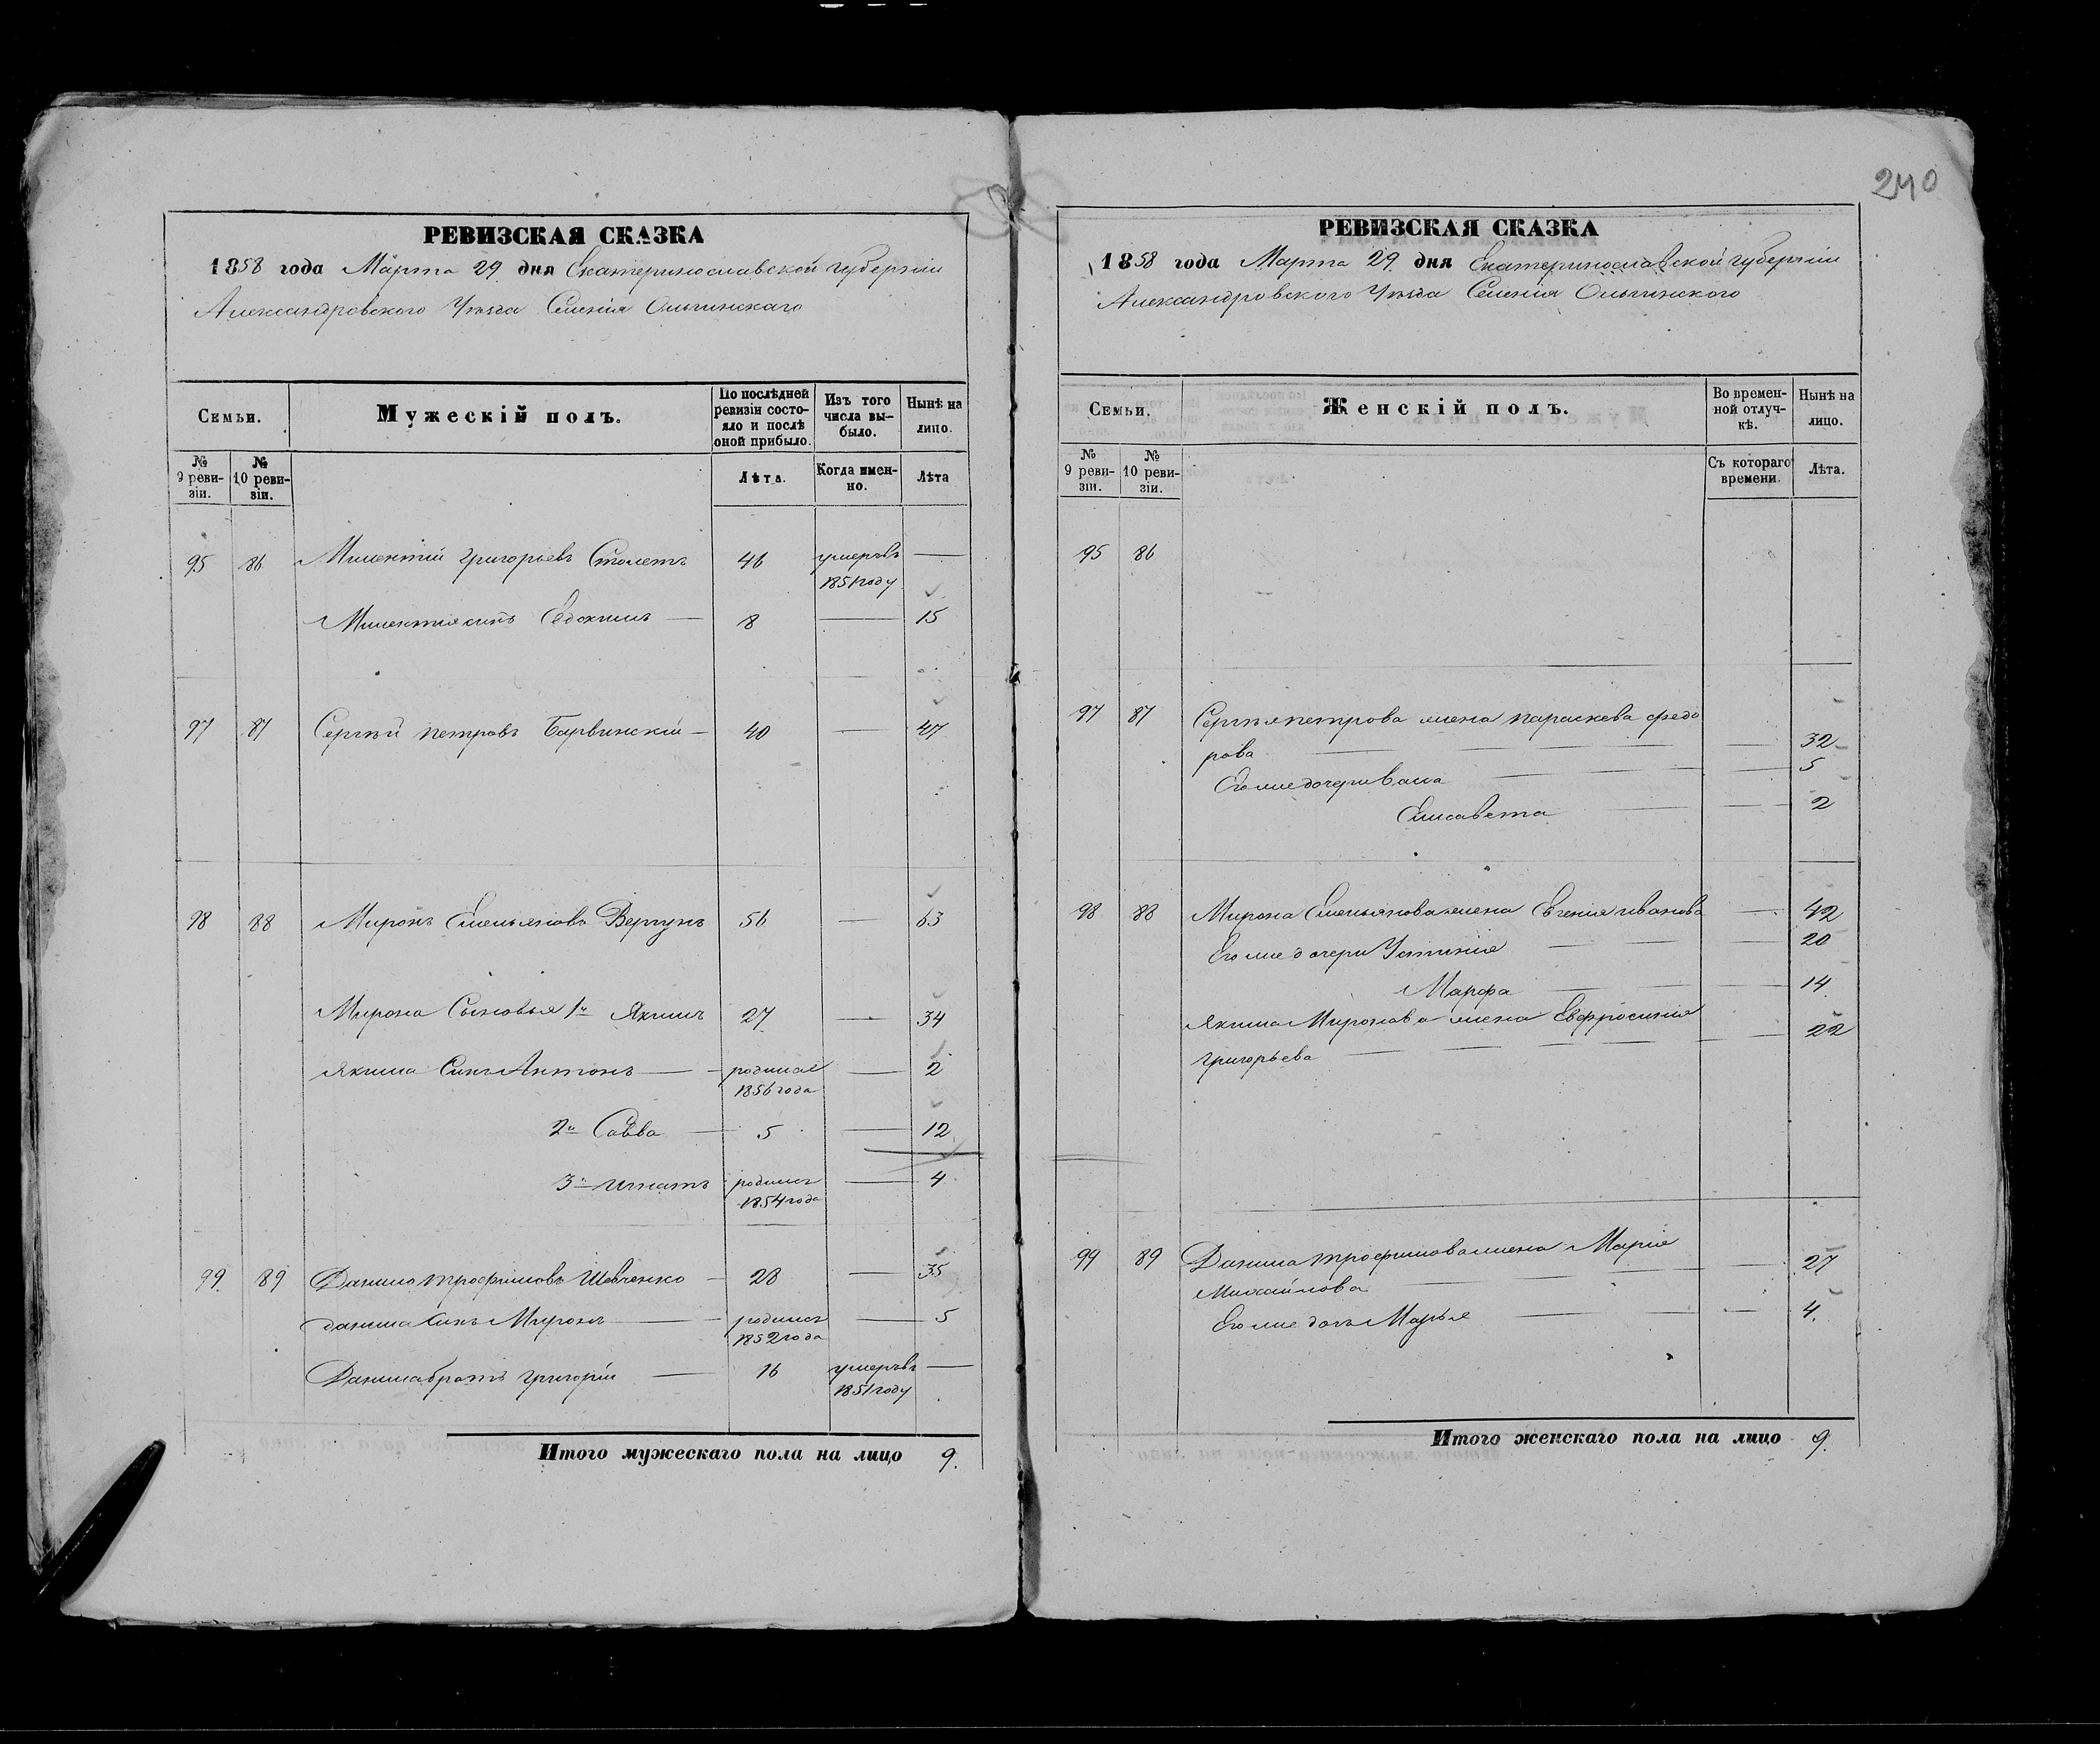 240
РЕВИЗСКАЯ СКАЗКА
1858 года Марта 29 дня Екатеринославской губерніи
Александровского Уѣзда Селенія Ольгинскаго
Семьи.
Мужескій полъ.
По послѣдней ревизіи состояло и послѣ оной прибыло.
Изъ того числа выбыло.
Нынѣ на лицо.
№ 9 ревизіи.
№ 10 ревизіи.
Лѣта.
Когда именно.
Лѣта
95 86 Милентій Григорьевъ 46 умеръ въ 1851 году —
Милентія сынъ Евдокимъ — 8 — 15
97 87 Сергѣй Петровъ Барвинскій — 40 — 47
98 88 Миронъ Емельяновъ Вергунъ 56 — 63
Мирона Сыновья 1й Якимъ 27 — 34
Якима Сынъ Антонъ — родился 1856 года — 2
2й Савва — 5 — 12
3й Игнатъ родился 1854 года — 4
99. 89 Данило Трофимовъ Шевченко — 28 — 35
Данила Сынъ Миронъ — родился 1852 года — 5
Данила братъ Григорій — 16 умеръ въ 1851 году —
Итого мужескаго пола на лицо 9.
РЕВИЗСКАЯ СКАЗКА
1858 года Марта 29 дня Екатеринославской губерніи
Александровского Уѣзда Селенія Ольгинского
Семьи.
Женскій полъ.
Во временной отлучкѣ.
Нынѣ на лицо.
№ 9 ревизіи.
№ 10 ревизіи.
Съ котораго времени.
Лѣта.
95 86
97 87 Сергѣя Петрова жена Параскева Федо
рова — — 32
Его же дочери — — 5
Елисавета — — 2
98 88 Мирона Емельянова жена Евгенія Иванова — 42
Его же дочери Устинія — — 20
Марфа — — 14
Якима Миронова жена Евфросинія
Григорьева — — 22
99 89 Данила Трофимова жена Марія
Михайлова — — 27
Его же дочь Марья — — 4.
Итого женскаго пола на лицо 9.